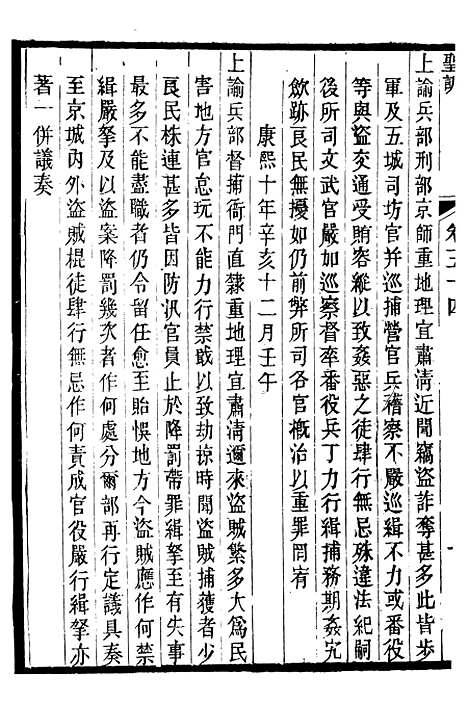 聖訓
卷五十四
上諭兵部刑部京師重地理宜肅清近聞竊盜詐奪甚多此皆步
軍及五城司坊官并巡捕營官兵稽察不嚴巡緝不力或番役
等與盜交通受賄容縱以致姦惡之徒肆行無忌殊違法紀嗣
後所司文武官嚴加巡察督率番役兵丁力行緝捕務期姦宄
斂跡良民無擾如仍前弊所司各官槪治以重罪罔宥
康熙十年辛亥十二月壬午
上諭兵部督捕衙門直隸重地理宜肅清邇來盜賊繁多大爲民
害地方官怠玩不能力行禁戢以致劫掠時聞盜賊捕獲者少
良民株連甚多皆因防汛官員止於降罰帶罪緝拏至有失事
最多不能盡職者仍令留任愈至貽悞地方今盜賊應作何禁
緝嚴拏及以盜案降罰幾次者作何處分爾部再行定議具奏
至京城內外盜賊棍徒肆行無忌作何責成官役嚴行緝拏亦
著一併議奏